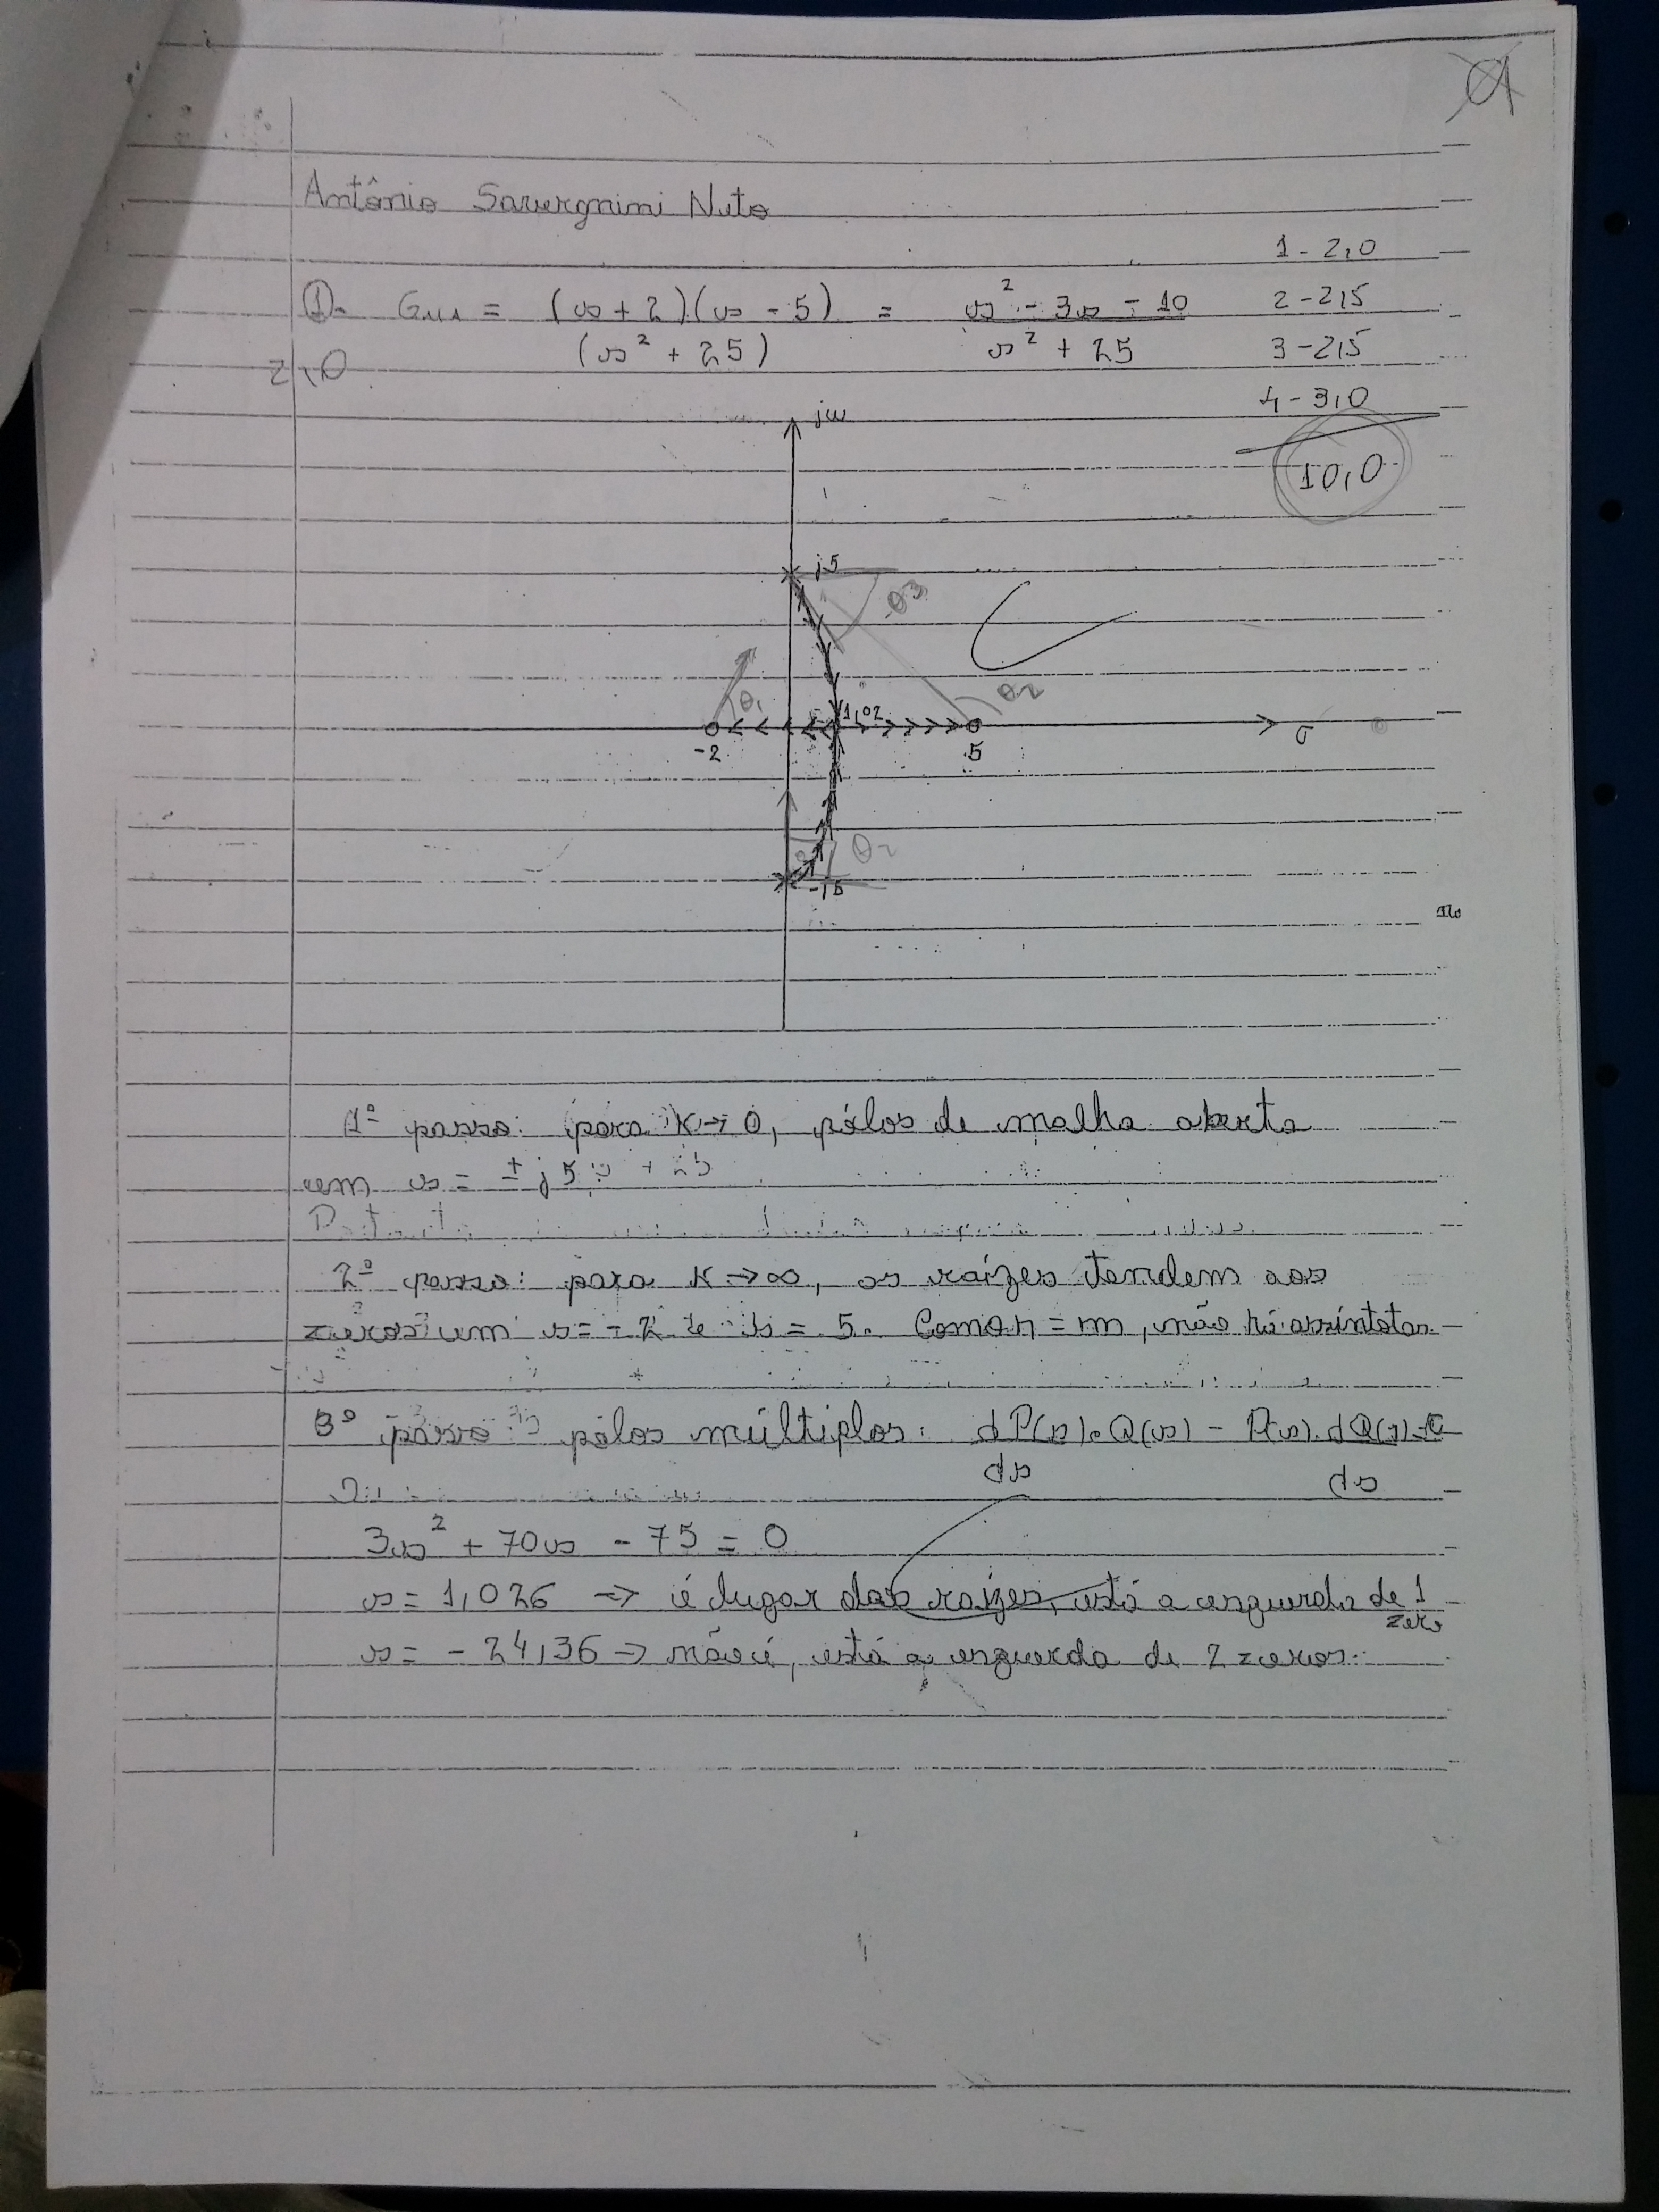 Antônio Savergnini Neto
1 - 2,0
①- G(s) = (s + 2)(s - 5) = s² - 3s - 10
2 - 2,5
(s² + 25) s² + 25
3 - 2,5
2,0
4 - 3,0
10,0
jω
j5
θ3
θ1
θ2
1,02
-2
5
σ
θ2
-j5
1º passo: para K→0, pólos de malha aberta
em s = ± j5
2º passo: para K→∞, as raízes tendem aos
zeros em s = -2 e s = 5. Como n = m, não há assíntotas.
3º passo: pólos múltiplos: dP(s).Q(s) - P(s).dQ(s)=0
ds ds
3s² + 70s - 75 = 0
s = 1,026 → é lugar das raízes, está a esquerda de 1
zero
s = - 24,36 → não é, está a esquerda de 2 zeros.